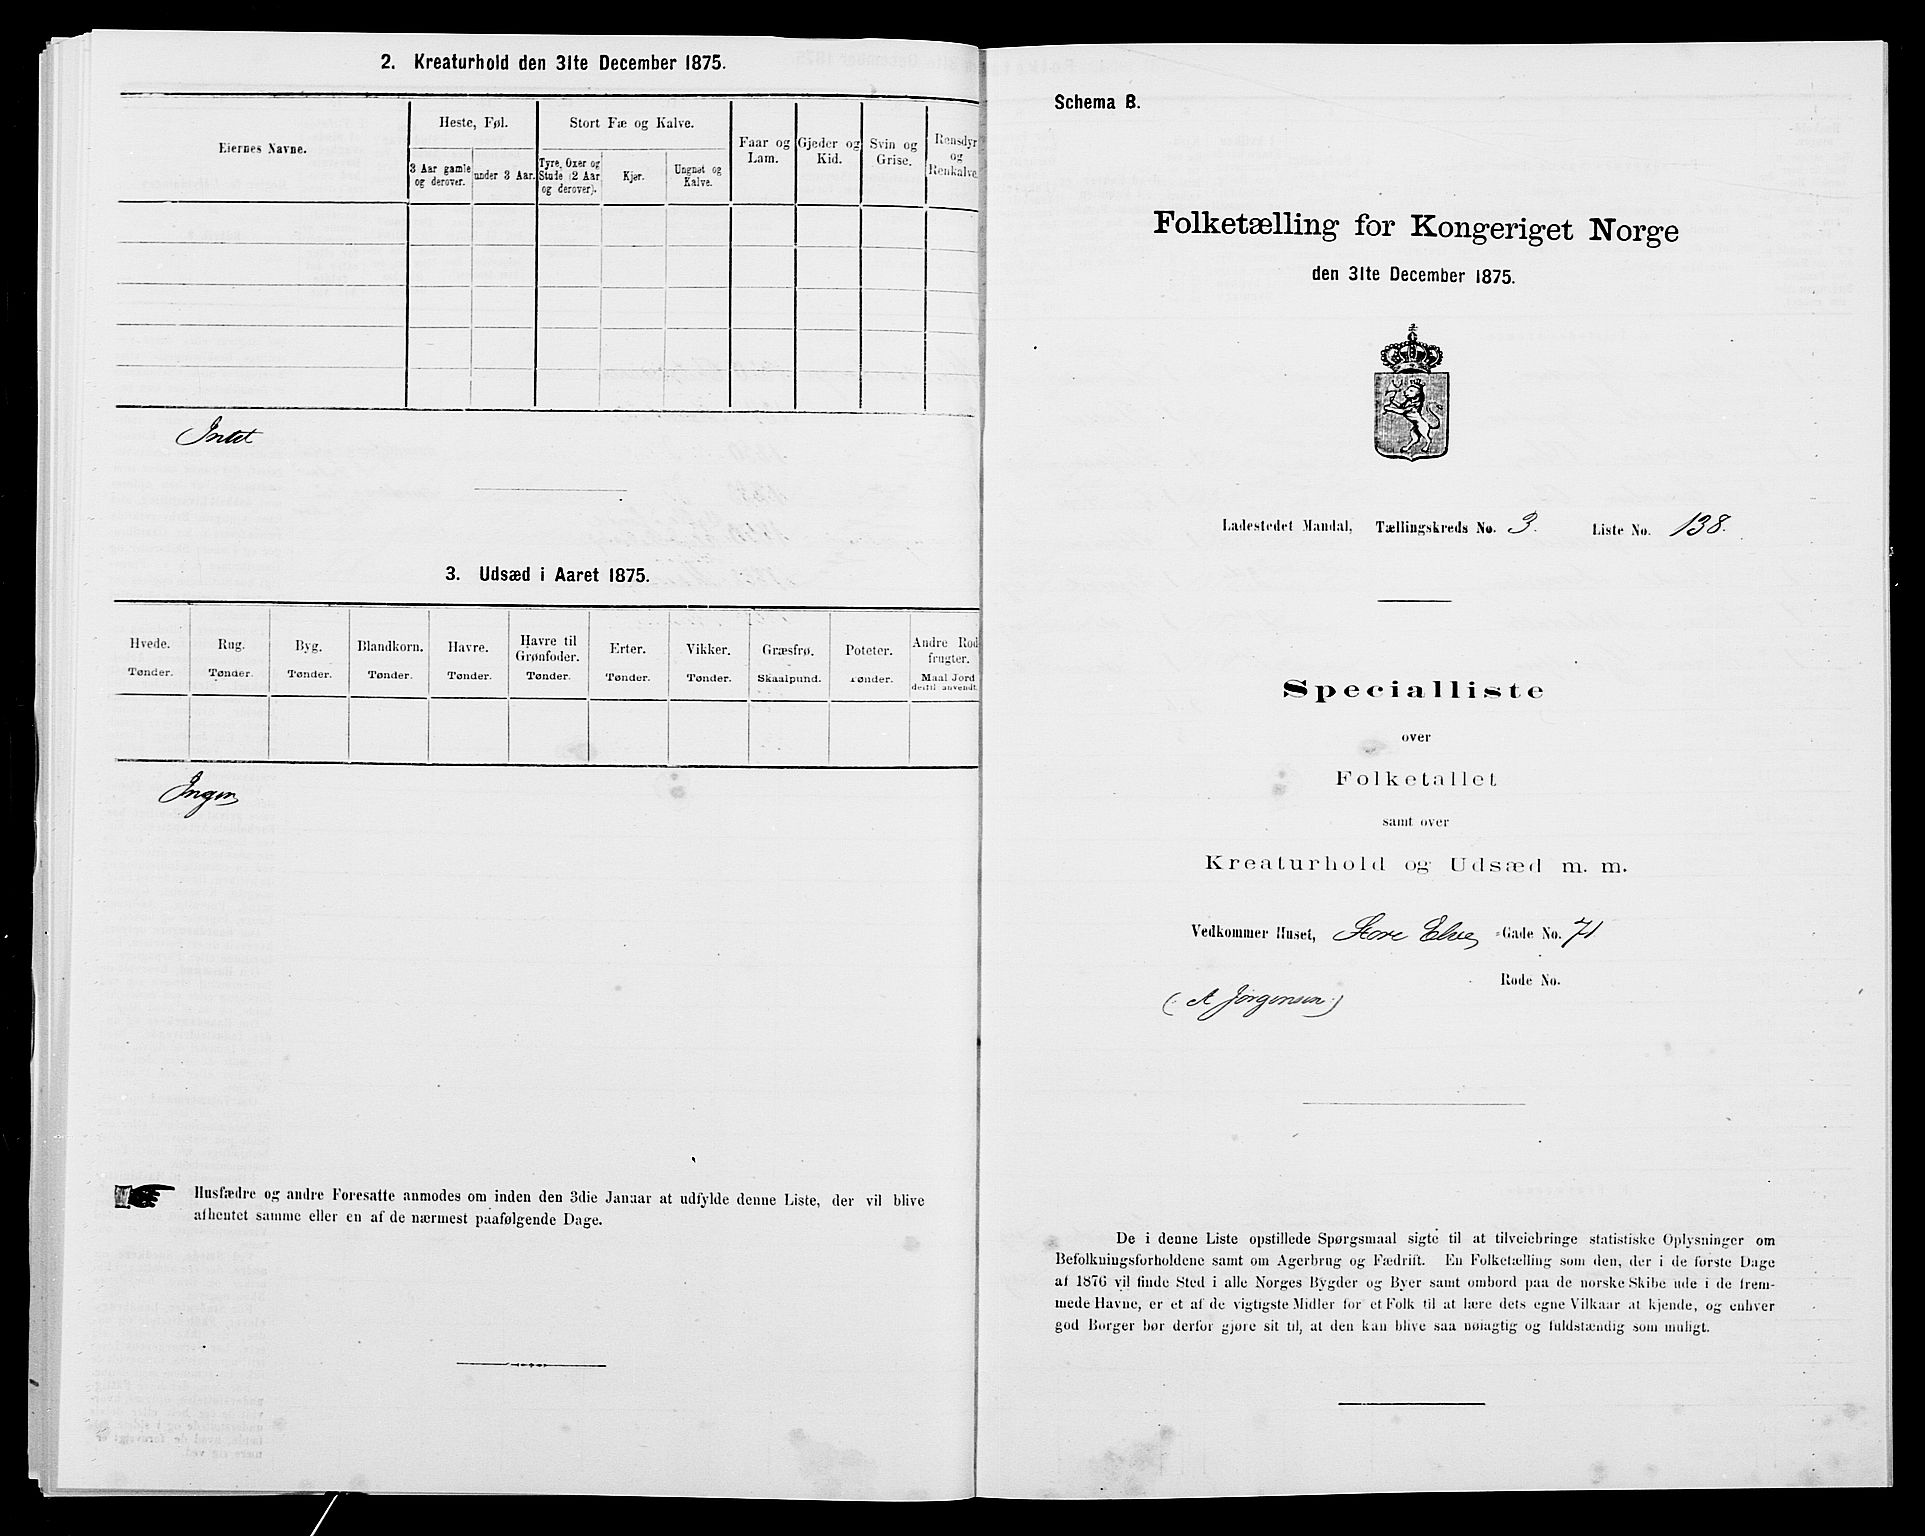 2. Kreaturhold den 31te December 1875.
Eiernes Navne.
Heste, Føl.
Stort Fæ og Kalve.
Faar og Lam.
Gjeder og Kid.
Svin og Grise.
Rensdyr og Renkalve.
3 Aar gamle og derover.
under 3 Aar.
Tyre, Oxer og Stude (2 Aar og derover).
Kjør.
Ungnøt og Kalve.
Intet
3. Udsæd i Aaret 1875.
Hvede. Rug. Byg. Blandkorn. Havre. Havre til Grønfoder. Erter. Vikker. Græsfrø. Poteter. Andre Rodfrugter.
Tønder. Tønder. Tønder. Tønder. Tønder. Tønder. Tønder. Tønder. Skaalpund. Tønder. Maal Jord dertil anvendt.
Ingen
Husfædre og andre Foresatte anmodes om inden den 3die Januar at udfylde denne Liste, der vil blive
afhentet samme eller en af de nærmest paafølgende Dage.
Schema B.
Folketælling for Kongeriget Norge
den 31te December 1875.
Ladestedet Mandal, Tællingskreds No. 3. Liste No. 138.
Specialliste
over
Folketallet
samt over
Kreaturhold og Udsæd m. m.
Vedkommer Huset, Store Elve -Gade No. 71
Rode No.
(A Jørgensen)
De i denne Liste opstillede Spørgsmaal sigte til at tilveiebringe statistiske Oplysninger om
Befolkningsforholdene samt om Agerbrug og Fædrift. En Folketælling som den, der i de første Dage
af 1876 vil finde Sted i alle Norges Bygder og Byer samt ombord paa de norske Skibe ude i de frem-
mede Havne, er et af de vigtigste Midler for et Folk til at lære dets egne Vilkaar at kjende, og enhver
god Borger bør derfor gjøre sit til, at den kan blive saa nøiagtig og fuldstændig som muligt.